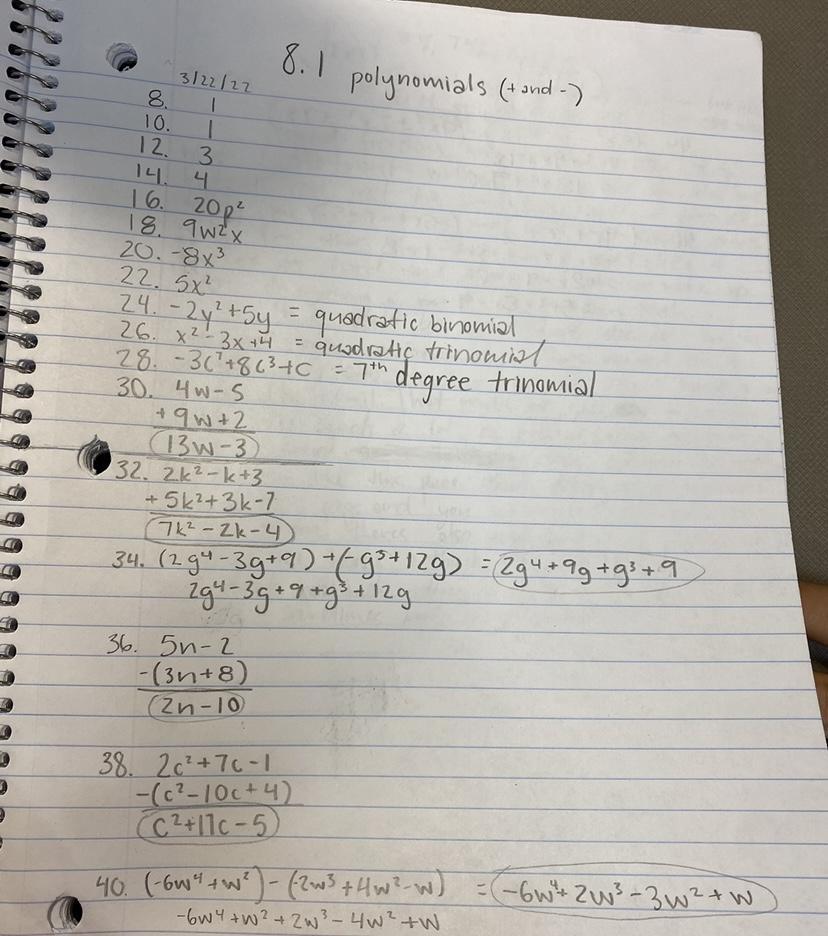 8.1 polynomials (+ and -)
3/22/22
8. 1
10. 1
12. 3
14. 4
16. 20p²
18. 9w²x
20. -8x³
22. 5x²
24. -2y²+5y = quadratic binomial
26. x²-3x+4 = quadratic trinomial
28. -3c⁷+8c³+c = 7th degree trinomial
30. 4w-5
+9w+2
13w-3
32. 2k²-k+3
+5k²+3k-7
7k²-2k-4
34. (2g⁴-3g+9)+(-g³+12g) = 2g⁴+9g+g³+9
2g⁴-3g+9+g³+12g
36. 5n-2
-(3n+8)
2n-10
38. 2c²+7c-1
-(c²-10c+4)
c²+17c-5
40. (-6w⁴+w²)-(-2w³+4w²-w) = -6w⁴+2w³-3w²+w
-6w⁴+w²+2w³-4w²+w